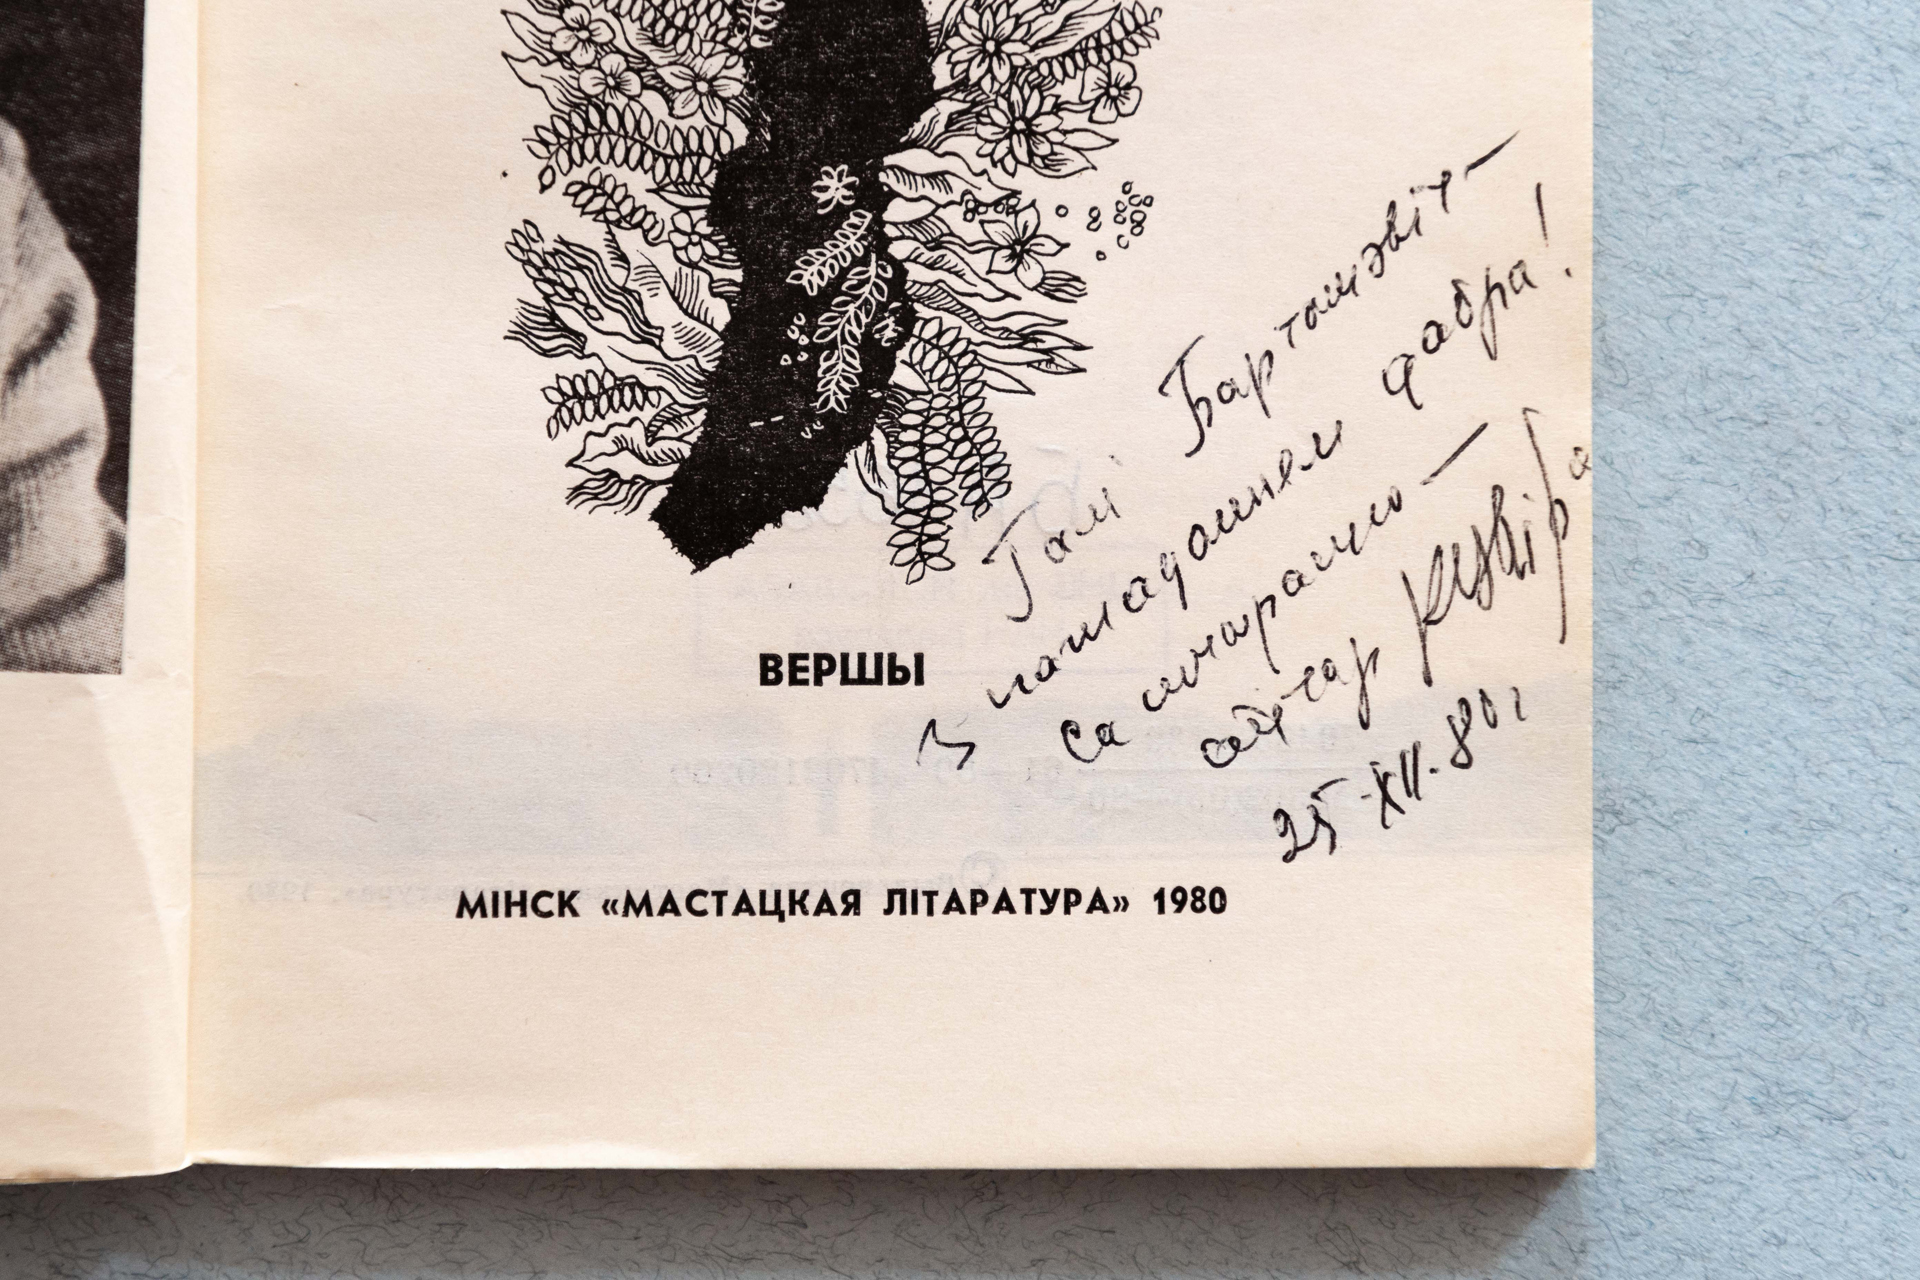 Галі Барташэвіч —
З пажаданнем дабра!
Са шчырасцю —
аўтар
25.XII.80 г
ВЕРШЫ
МІНСК «МАСТАЦКАЯ ЛІТАРАТУРА» 1980